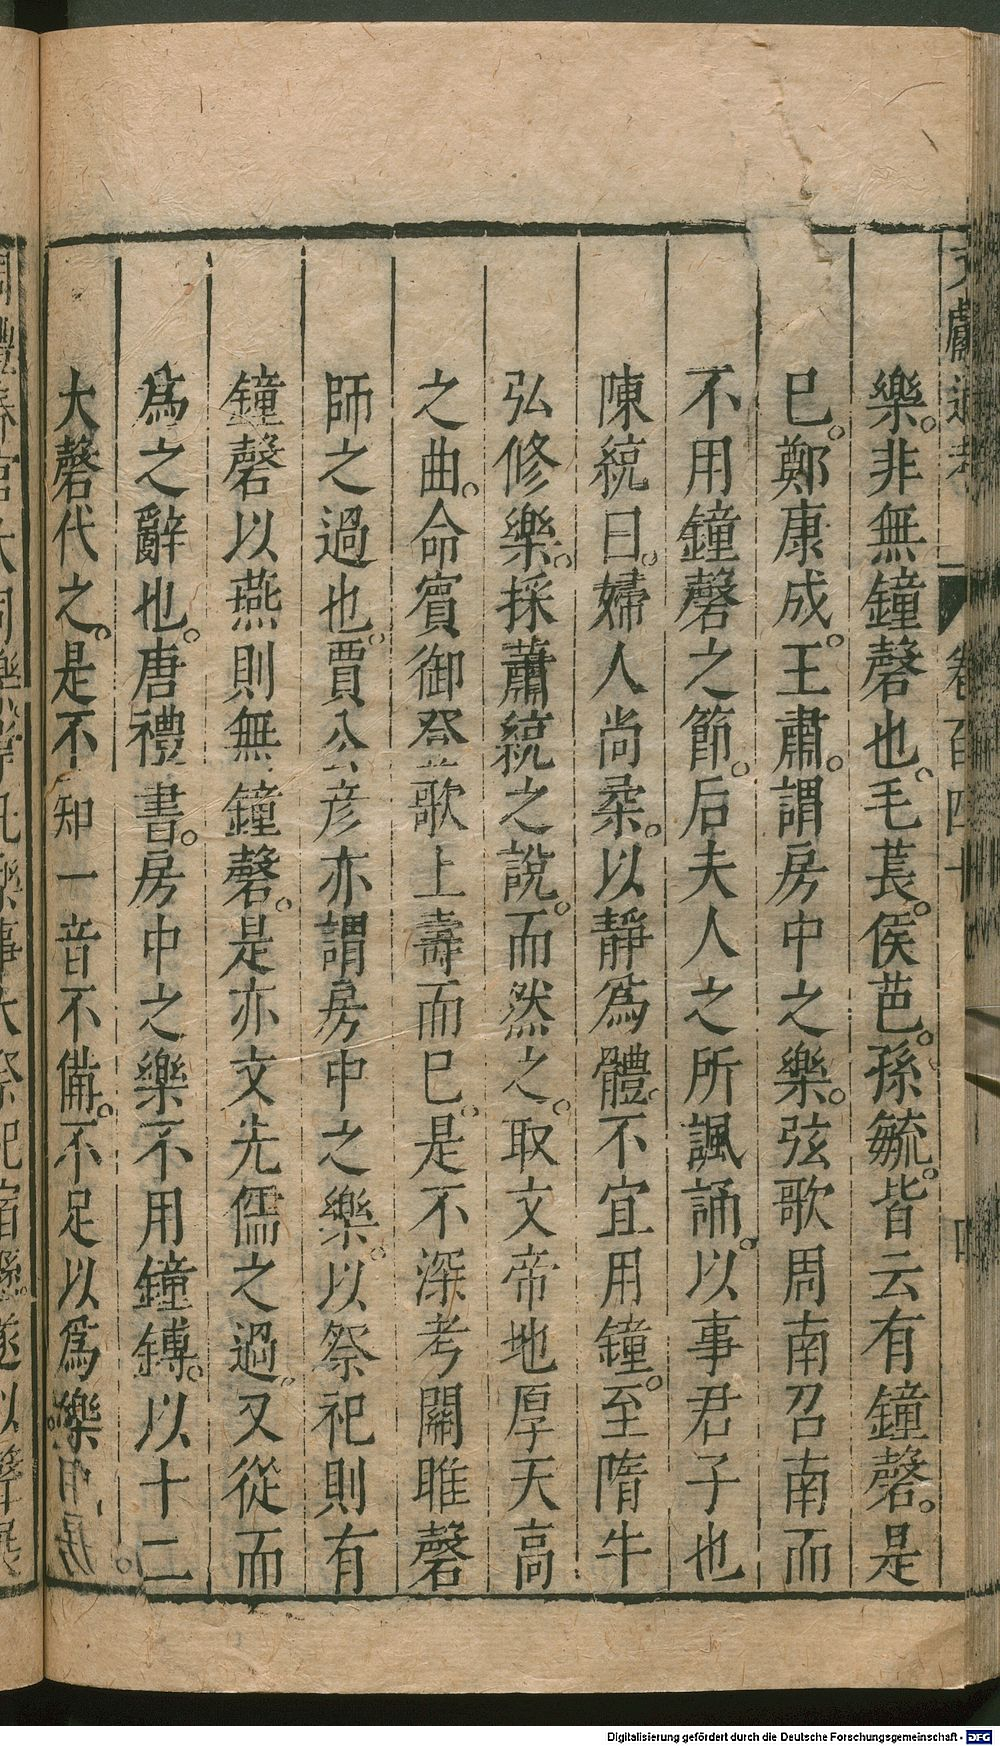 樂。非無鐘磬也。毛萇。侯芭。孫毓。皆云有鐘磬。是
已。鄭康成。王肅。謂房中之樂。弦歌周南召南而
不用鐘磬之節。后夫人之所諷誦。以事君子也
陳統曰。婦人尚柔。以靜為體。不宜用鐘。至隋牛
弘修樂。採蕭統之說。而然之。取文帝地厚天高
之曲。命賓御登歌上壽而已。是不深考關雎磬
師之過也。賈公彥亦謂房中之樂。以祭祀則有
鐘磬以燕則無鐘磬。是亦文先儒之過。又從而
為之辭也。唐禮書。房中之樂不用鐘鎛。以十二
大磬代之。是不知一音不備。不足以為樂
Digitalisierung gefördert durch die Deutsche Forschungsgemeinschaft - DFG